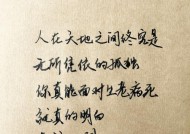 人在天地之间终究是
无所凭依的孤独
你真能面对生老病死
就真的明白